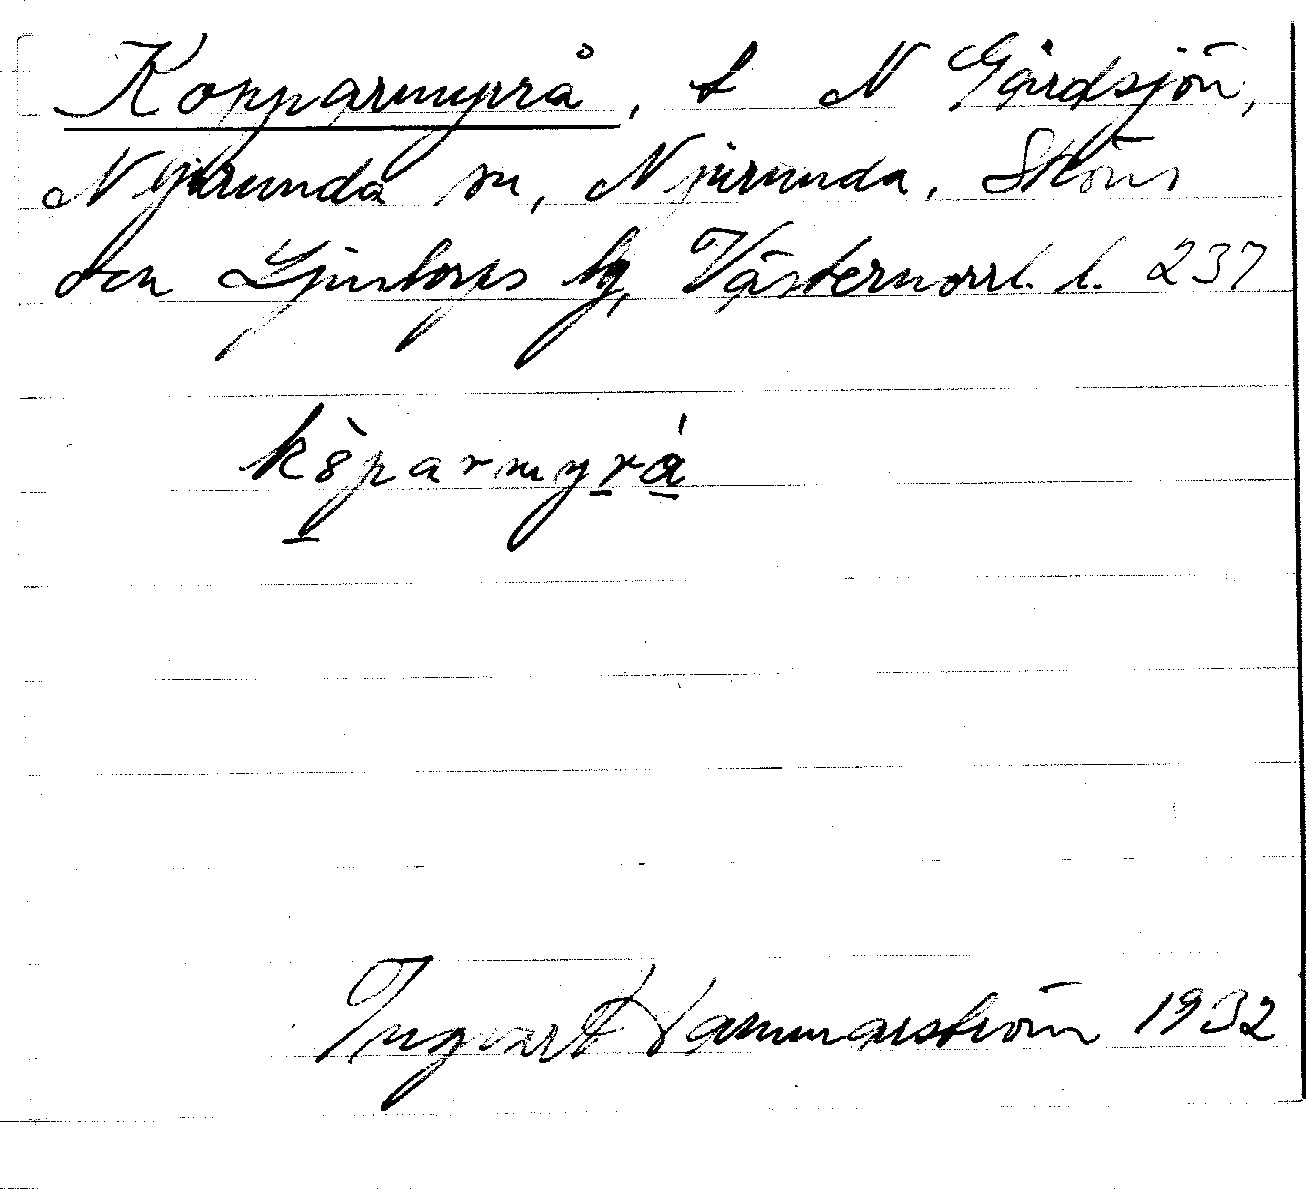 Kopparmyrrå, t N Gårdsjön,
Njurunda sn, Njurunda, Sköns
och Ljustorps tg, Västernorrl. l. 237
Ingvart Hammarström 1932